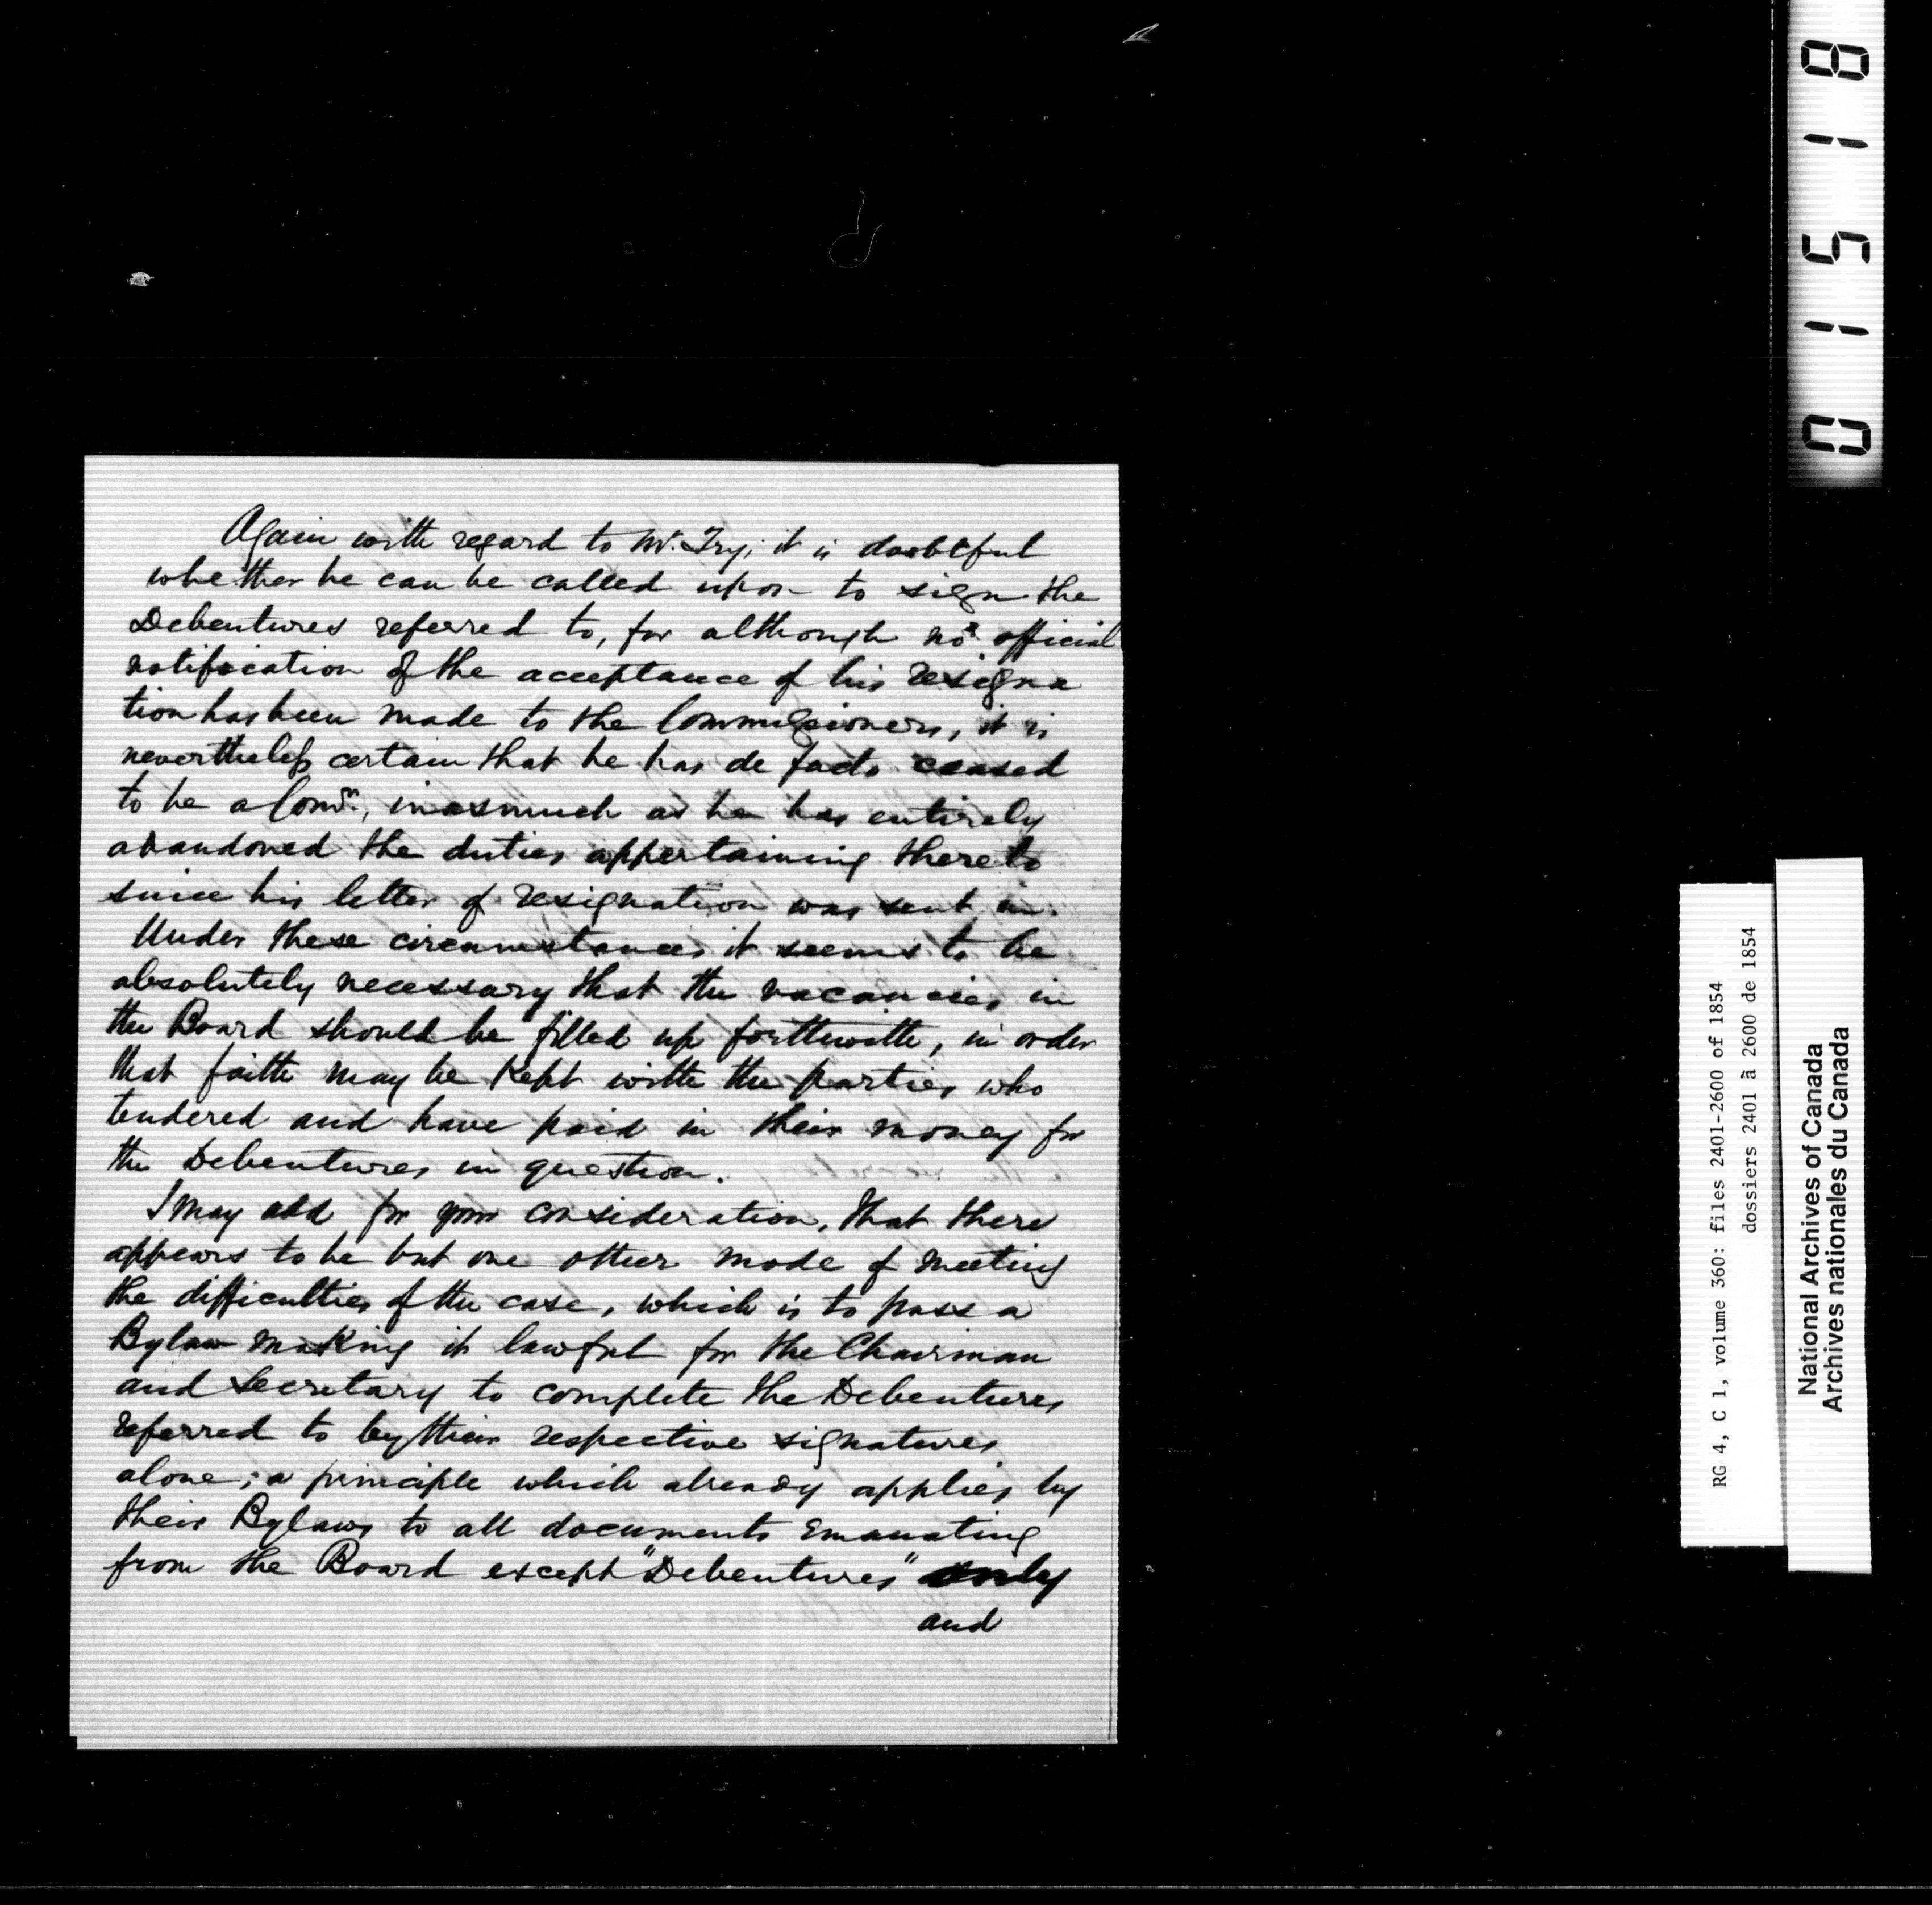 Again with regard to Mr. Try; it is doubtful
whether he can be called upon to sign the
Debentures referred to, for although no official
notification of the acceptance of his resigna
tion has been made to the Commissioners, it is
nevertheless certain that he has de facto ceased
to be a Comr., inasmuch as he has entirely
abandoned the duties appertaining thereto
since his letter of resignation was sent in.
Under these circumstances it seems to be
absolutely necessary that the vacancies in
the Board should be filled up forthwith, in order
that faith may be kept with the parties who
tendered and have paid in their money for
the Debentures in question.
I may add for your consideration, that there
appears to be but one other mode of meeting
the difficulties of the case, which is to pass a
Bylaw making it lawful for the Chairman
and Secretary to complete the Debentures
referred to by their respective signatures
alone; a principle which already applies by
their Bylaws to all documents emanating
from the Board except "Debentures" only
and
01518
RG 4, C 1, volume 360: files 2401-2600 of 1854
dossiers 2401 à 2600 de 1854
National Archives of Canada
Archives nationales du Canada